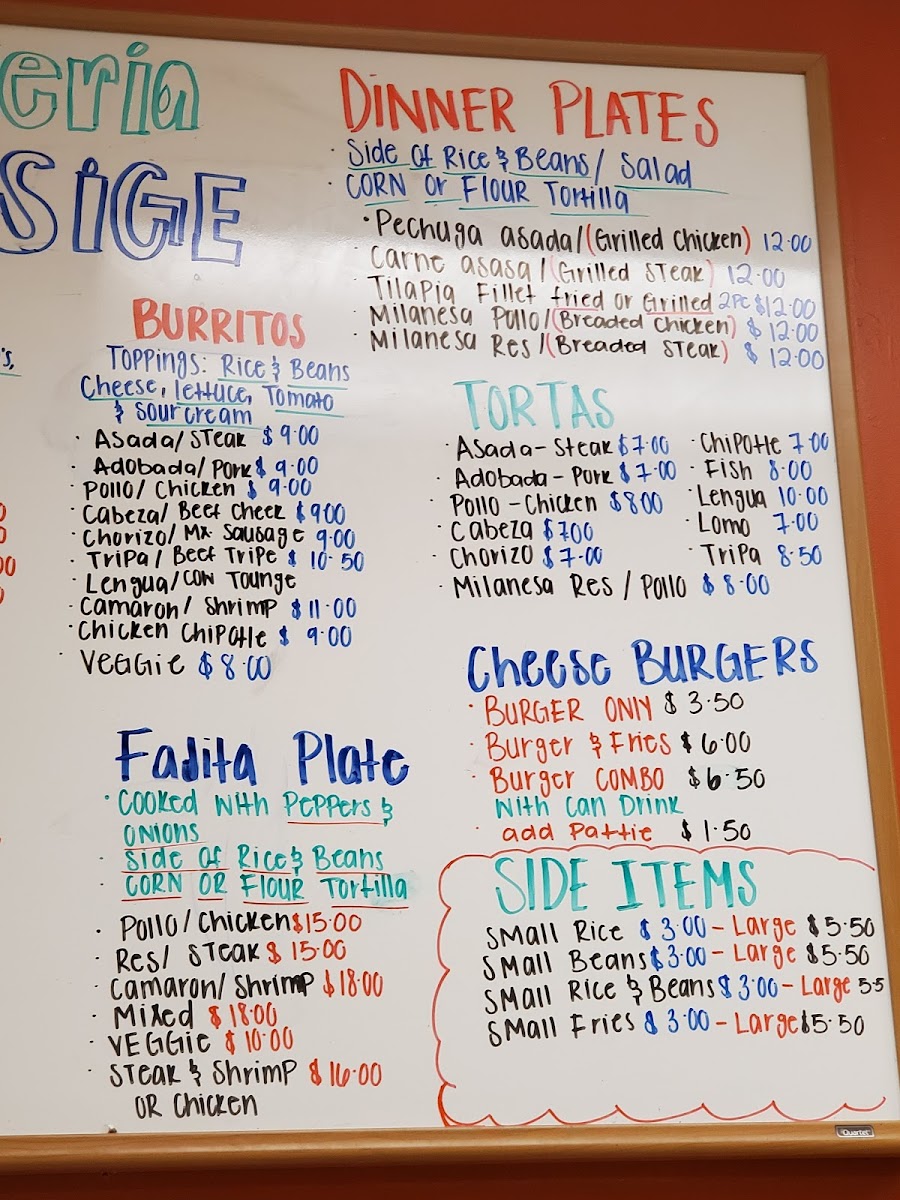 eria
SIGE
BURRITOS
Toppings: Rice & Beans
Cheese, lettuce, Tomato
& Sour cream
· Asada/Steak $9.00
· Adobada/Pork $9.00
· Pollo/Chicken $9.00
· Cabeza/Beef Cheek $900
· Chorizo/Mx Sausage 9.00
· Tripa/Beef Tripe $10.50
· Lengua/Cow Tounge
· Camaron/Shrimp $11.00
· Chicken Chipotle $9.00
· Veggie $8.00
Fajita Plate
· Cooked with Peppers &
onions
· Side of Rice & Beans
· CORN OR FLOUR Tortilla
· Pollo/Chicken $15.00
· Res/Steak $15.00
· Camaron/Shrimp $18.00
· Mixed $18.00
· VEGGie $10.00
· Steak & Shrimp $16.00
OR Chicken
DINNER PLATES
· Side of Rice & Beans/Salad
· CORN or Flour Tortilla
· Pechuga asada/(Grilled Chicken) 12.00
· Carne asasa/(Grilled Steak) 12.00
· Tilapia Fillet fried or Grilled 2PC $12.00
· Milanesa Pollo/(Breaded Chicken) $12.00
· Milanesa Res/(Breaded Steak) $12.00
TORTAS
· Asada-Steak $7.00
· Adobada-Pork $7.00
· Pollo-Chicken $800
· Cabeza $700
· Chorizo $7.00
· Milanesa Res/Pollo $8.00
· Chipotle 7.00
· Fish 8.00
· Lengua 10.00
· Lomo 7.00
· Tripa 8.50
Cheese BURGERS
· BURGER ONLY $3.50
· Burger & Fries $6.00
· Burger COMBO $6.50
with can Drink
· add Pattie $1.50
SIDE ITEMS
Small Rice $3.00 - Large $5.50
Small Beans $3.00 - Large $5.50
Small Rice & Beans $3.00 - Large 5.5
Small Fries $3.00 - Large $5.50
Quartet